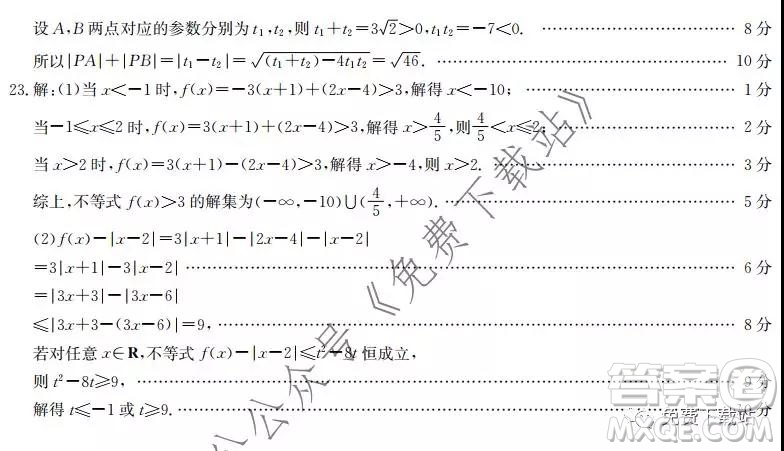 设 A,B 两点对应的参数分别为 t₁,t₂,则 t₁+t₂=3√2>0,t₁t₂=-7<0. 8 分
所以|PA|+|PB|=|t₁-t₂|=√((t₁+t₂)-4t₁t₂)=√46. 10 分
23.解:(1)当 x<-1 时,f(x)=-3(x+1)+(2x-4)>3,解得 x<-10; 1 分
当-1≤x≤2 时,f(x)=3(x+1)+(2x-4)>3,解得 x>4/5,则4/5<x≤2; 2 分
当 x>2 时,f(x)=3(x+1)-(2x-4)>3,解得 x>-4,则 x>2. 3 分
综上,不等式 f(x)>3 的解集为(-∞,-10)∪(4/5,+∞). 5 分
(2)f(x)-|x-2|=3|x+1|-|2x-4|-|x-2|
=3|x+1|-3|x-2| 6 分
=|3x+3|-|3x-6|
≤|3x+3-(3x-6)|=9, 8 分
若对任意 x∈R,不等式 f(x)-|x-2|≤t²-8t 恒成立,
则 t²-8t≥9, 9 分
解得 t≤-1 或 t≥9. 分
公众号《免费下载站》
免费下载站
答案圈